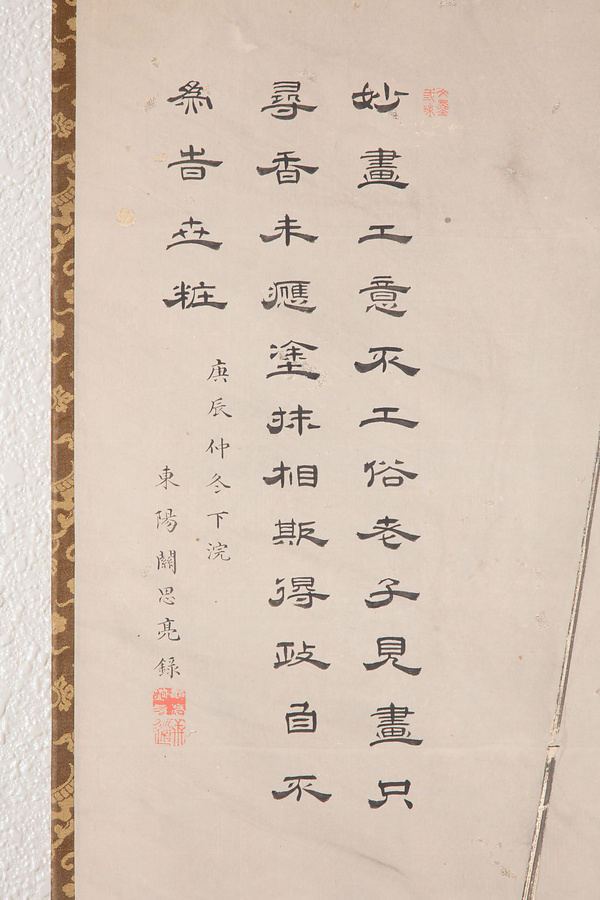 妙畫工意不工俗老子見畫只
尋香未應塗抹相欺得政自不
為旹世粧
庚辰仲冬下浣
東陽關思亮錄